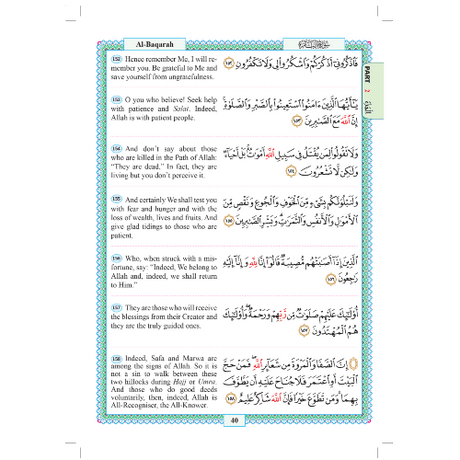 Al-Baqarah
سُورَةُ البَقَرَةِ
PART 2
152 Hence remember Me, I will re-
member you. Be grateful to Me and
save yourself from ungratefulness.
فَاذْكُرُونِي أَذْكُرْكُمْ وَاشْكُرُوا لِي وَلَا تَكْفُرُونِ ١٥٢
153 O you who believe! Seek help
with patience and Salat. Indeed,
Allah is with patient people.
يَٰٓأَيُّهَا ٱلَّذِينَ ءَامَنُوا ٱسْتَعِينُوا بِٱلصَّبْرِ وَٱلصَّلَوٰةِ
إِنَّ ٱللَّهَ مَعَ ٱلصَّٰبِرِينَ ١٥٣
154 And don't say about those
who are killed in the Path of Allah:
“They are dead.” In fact, they are
living but you don't perceive it.
وَلَا تَقُولُوا لِمَن يُقْتَلُ فِي سَبِيلِ ٱللَّهِ أَمْوَٰتٌۢ بَلْ أَحْيَآءٌ
وَلَٰكِن لَّا تَشْعُرُونَ ١٥٤
155 And certainly We shall test you
with fear and hunger and with the
loss of wealth, lives and fruits. And
give glad tidings to those who are
patient.
وَلَنَبْلُوَنَّكُم بِشَيْءٍ مِّنَ ٱلْخَوْفِ وَٱلْجُوعِ وَنَقْصٍ مِّنَ
ٱلْأَمْوَٰلِ وَٱلْأَنفُسِ وَٱلثَّمَرَٰتِ وَبَشِّرِ ٱلصَّٰبِرِينَ ١٥٥
156 Who, when struck with a mis-
fortune, say: “Indeed, We belong to
Allah and, indeed, we shall return
to Him.”
ٱلَّذِينَ إِذَآ أَصَٰبَتْهُم مُّصِيبَةٌ قَالُوٓا إِنَّا لِلَّهِ وَإِنَّآ إِلَيْهِ
رَٰجِعُونَ ١٥٦
157 They are those who will receive
the blessings from their Creator and
they are the truly guided ones.
أُولَٰٓئِكَ عَلَيْهِمْ صَلَوَٰتٌ مِّن رَّبِّهِمْ وَرَحْمَةٌ وَأُولَٰٓئِكَ
هُمُ ٱلْمُهْتَدُونَ ١٥٧
158 Indeed, Safa and Marwa are
among the signs of Allah. So it is
not a sin to walk between these
two hillocks during Hajj or Umra.
And those who do good deeds
voluntarily, then, indeed, Allah is
All-Recogniser, the All-Knower.
إِنَّ ٱلصَّفَا وَٱلْمَرْوَةَ مِن شَعَآئِرِ ٱللَّهِ فَمَنْ حَجَّ
ٱلْبَيْتَ أَوِ ٱعْتَمَرَ فَلَا جُنَاحَ عَلَيْهِ أَن يَطَّوَّفَ
بِهِمَا وَمَن تَطَوَّعَ خَيْرًا فَإِنَّ ٱللَّهَ شَاكِرٌ عَلِيمٌ ١٥٨
40